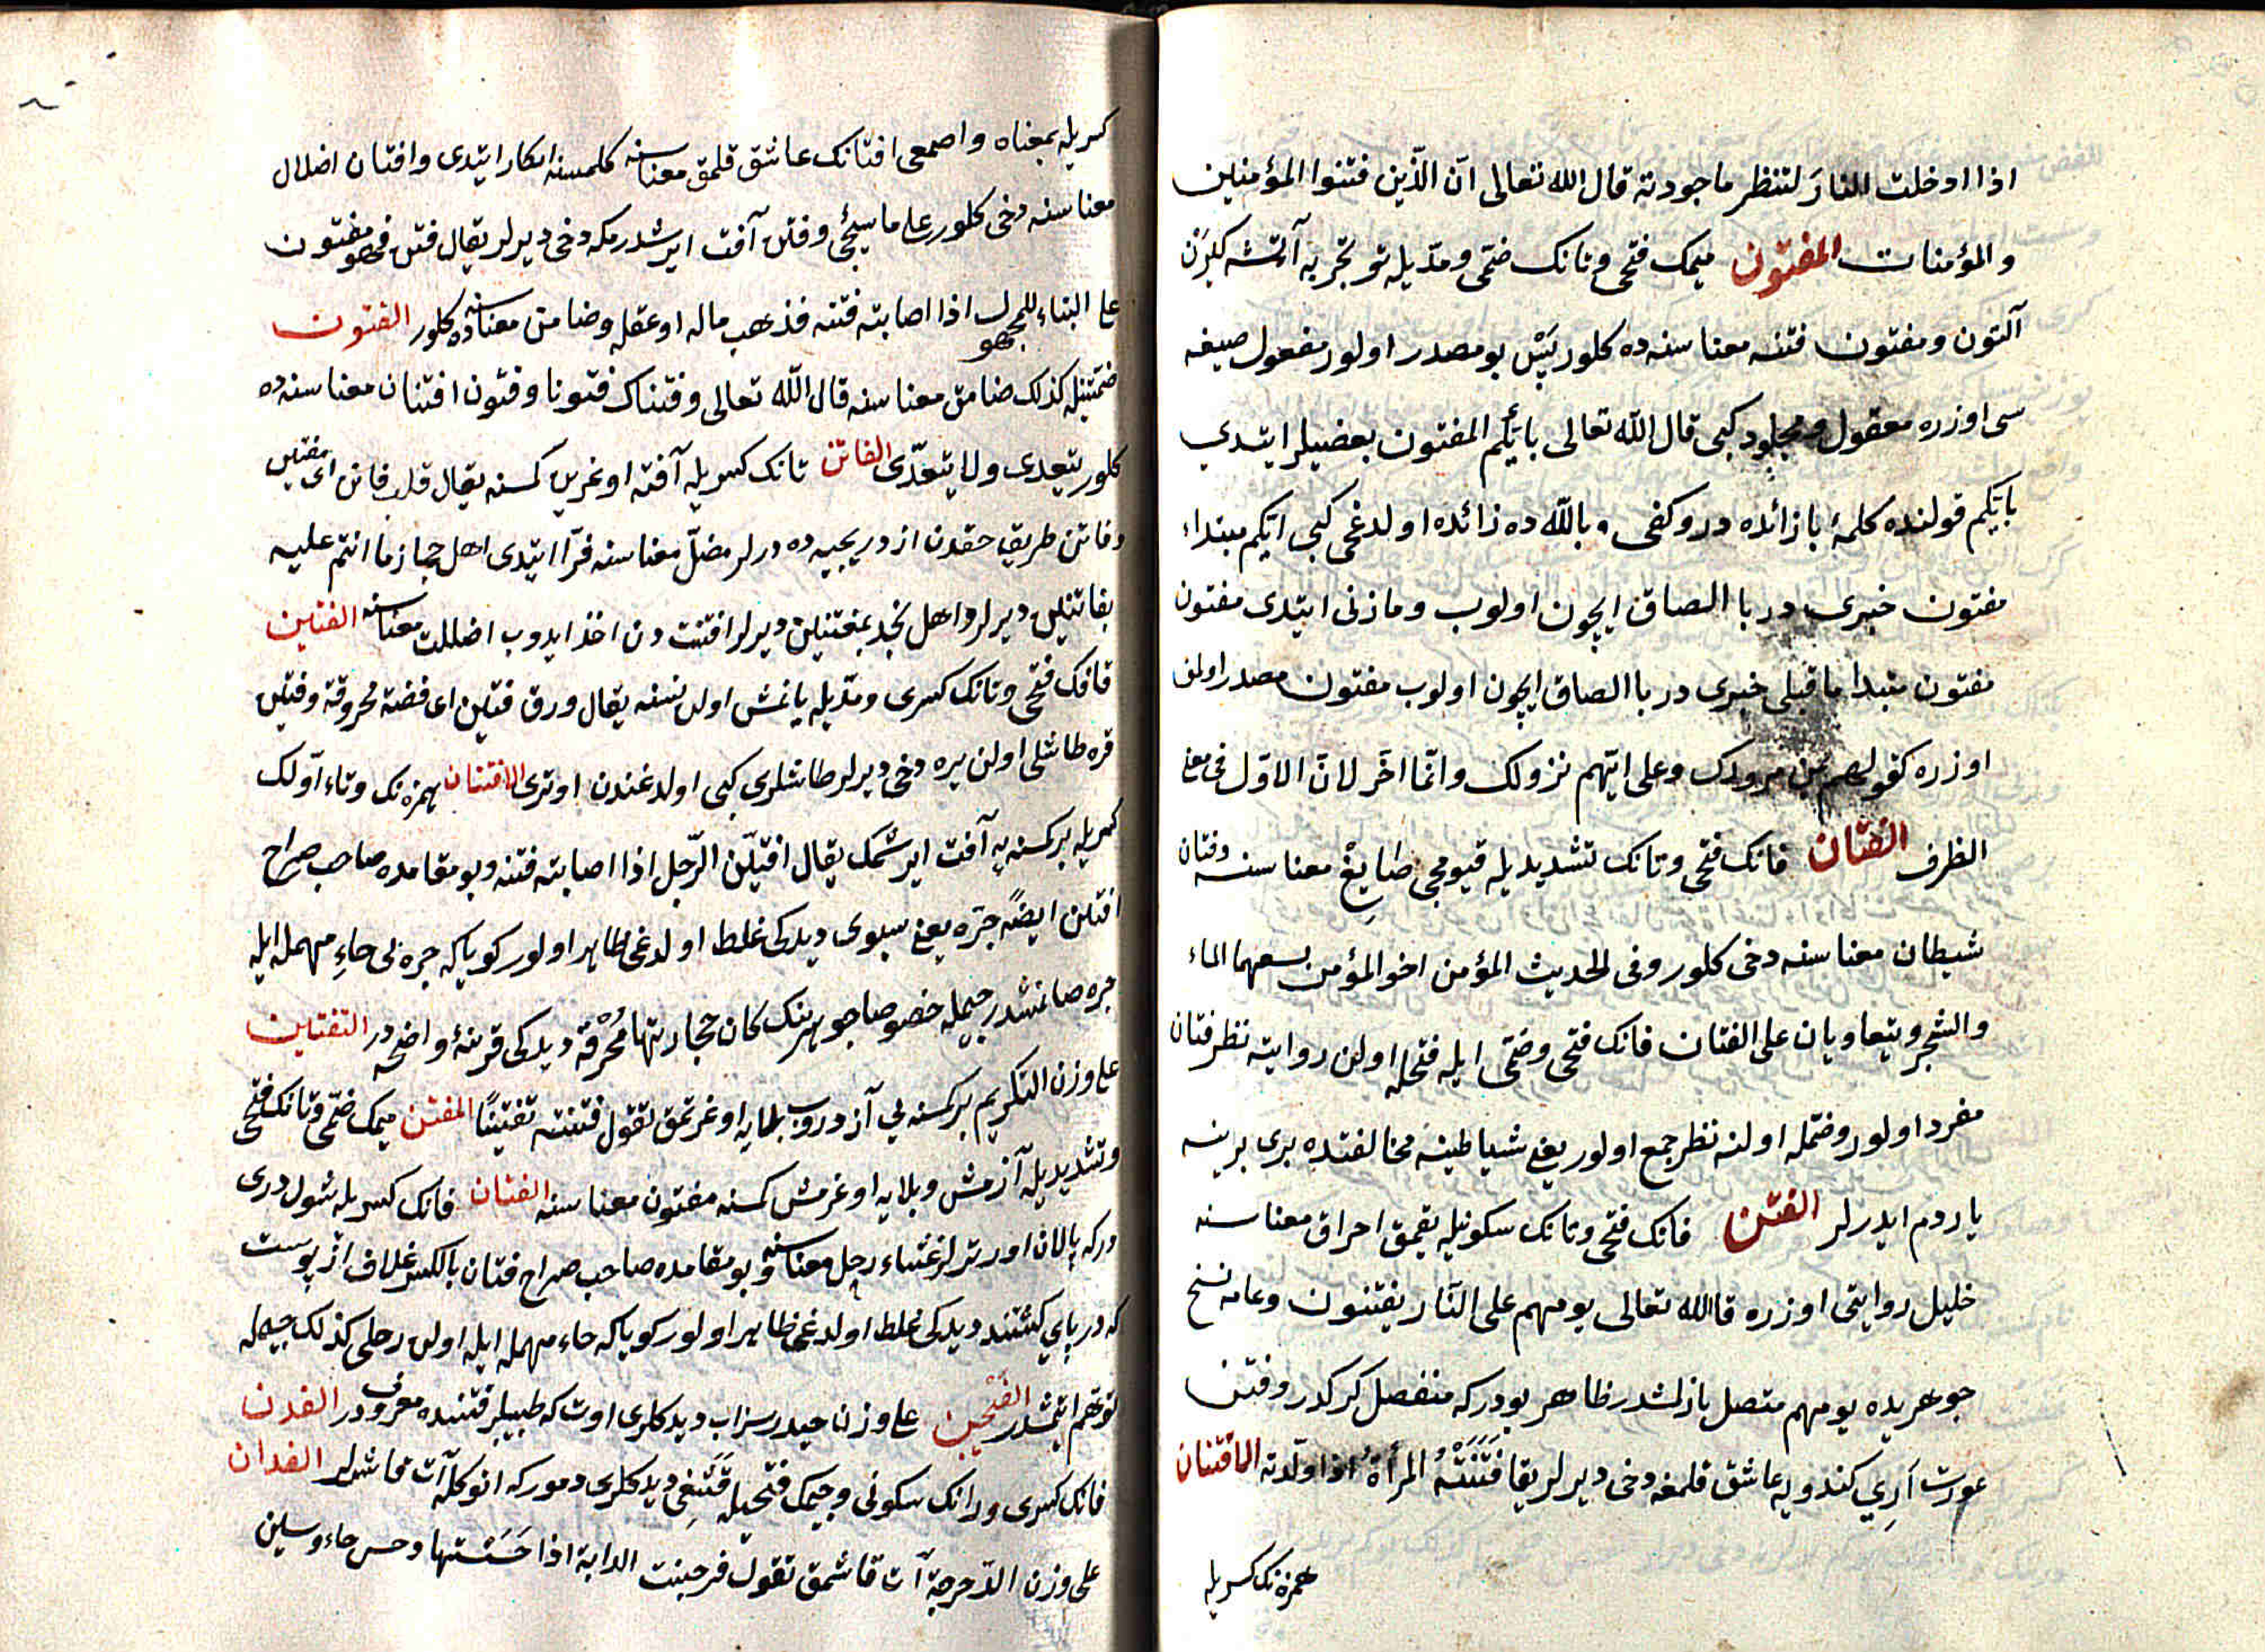 اذا ادخلت النارَ لتنظر ما جودته قال الله تعالى انّ الّذين فتنوا المؤمنين
والمؤمنات المفتون ميمك فتحى وتانك ضمّى ومدّيله تو تجربه آتشه كيرن
آلتون ومفتون فتنه معناسنه ده كلور پَيْس بو مصدر اولور مفعول صيغه
سى اوزره معقول ومجلود كبى قال الله تعالى بايّكم المفتون بعضيلر ايتدي
بايّكم قولنده كلمۀ با زائده در وكفى بالله ده زائده اولدغى كبى ايكم مبتداء
مفتون خبرى در با الصاق ايچون اولوب ومازنى ايتدى مفتون
مفتون مبتدا ما قبلى خبرى در با الصاق ايچون اولوب مفتون مصدر اولمق
اوزره كقولهم بمن مرورك وعلى ايّهم نزولك وانّما اخّر لانّ الاوّل فى معنى
الظرف الفتّان فانك فتحى وتانك تشديديله قيومجى صَايِغْ معناسنه وفتان
شيطان معناسنه دخى كلور وفى الحديث المؤمن اخو المؤمن يسعهما الماء
والشجر ويتعاويان على الفتان فانك فتحى وضمّى ايله فتحله اولن روايته نظر فتان
مفرد اولور وضمّله اولنه نظر جمع اولور يعنى شياطينه مخالفتده برى برينه
ياردم ايدرلر الفتن فانك فتحى وتانك سكونيله يقمق احراق معناسنه
خليل روايتى اوزره قال الله تعالى يومهم على النّار يفتنون وعامه نسخ
جوهريده يومهم متصل يازلمشدر ظاهر بودر كه منفصل كركدر وفتن
عورت آرِي كندويه عاشق قلمغه دخى ديرلر يقا فَتَنَتْهُ المرأةُ اذا ولّدته الافتنان
همزه نك كسريله
كسريله بمعناه واصمعى افتانك عاشق قلمق معناسنه كلمسنه انكار ايتدى وافتان اضلال
معناسنه دخى كلور على ما سيجئ وفتن آفت ايرشدرمكه دخى ديرلر يقال فتن فهو مفتون
على البناء للمجهول اذا اصابته فتنه فذهب ماله او عقله وضامن معناسنه ده كلور الفتون
ضمّتينله كذلك ضامن معناسنه قال الله تعالى وفتنّاك فتونا وفتون افتنان معناسنه ده
كلور يتعدى ولا يتعدّى الفاتن تانك كسريله آفته اوغرين كسنه يقال قلب فاتن اى مفتتن
وفاتن طريق حقدن ازدريجييه ده درلر مضلّ معناسنه فرّا ايتدى اهل حجاز ما انتم عليه
بفاتنين ديرلر واهل نجد بمفتنين ديرلر افتنت دن اخذ ايدوب اضللت معناسنه الفتين
فانك فتحى وتانك كسرى ومدّيله يانمش اولن نسنه يقال ورق فتين اى فضة محروقة وفتين
قره طاشلى اولن يره دخى ديرلر طاشلرى كبى اولدغندن اوترى الافتنان همزه نك وتاء اولك
كسريله بر كسنه يه آفت ايرشمك يقال افتتن الرّجل اذا اصابته فتنه وبو مقامده صاحب صراح
افتتن ايضًا جرّه يعنى سبوى ديدكى غلط اولدغى ظاهر اولور كوياكه جره يى حاءِ مهمله ايله
جره صانمشدر جيمله خصوصا جوهرينك كان حجارتها مُحْرَقة ديدكى قرينۀ واضحه در التفتين
على وزن التكريم بر كسنه يى آزدروب بلايه اوغرتمق تقول فتنته تفتينًا المفتن ميمك ضمّى وتانك فتحى
وتشديديله آزمش وبلايه اوغرمش كسنه مفتون معناسنه الفتان فانك كسريله شول درى
دركه پالان اورترلر غشاء رحل معناسنه وبو مقامده صاحب صراح فتان بالكسر غلاف از پوست
كه در پاي كشند ديدكى غلط اولدغى ظاهر اولور كوياكه حاء مهمله ايله اولن رحلى كذلك جيمله
توهّم ايتمشدر الفَيْجَن على وزن حيدر سزاب ديدكلرى اوت كه طبيبلر قتنده معروفدر الفدن
فانك كسرى ورانك سكونى وجيمك فتحيله قَشَغِى ديدكلرى دمور كه انوكله آت قاشرلر الفدان
على وزن الدّحرجة آت قاشمق تقول فرجنت الدابة اذا حَسَسْتها وحس حاء وسين